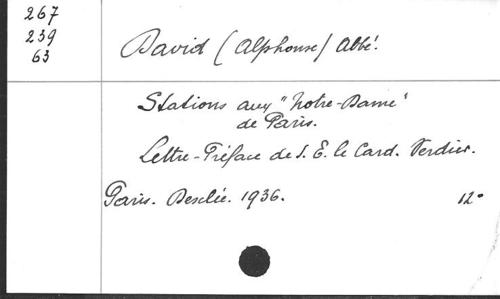 267
239
63
David (Alphonse) Abbé.
Stations aux "Notre-Dame"
de Paris.
Lettre-Préface de S. E. le Card. Verdier.
Paris. Desclée. 1936. 12°